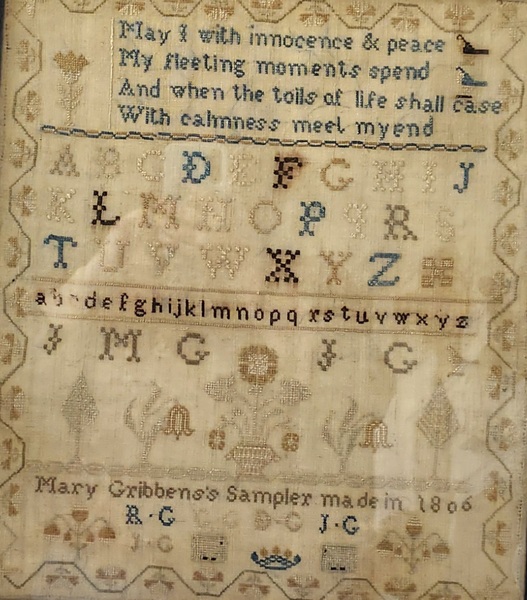 May I with innocence & peace
My fleeting moments spend
And when the toils of life shall case
With calmness meet my end
A B C D E F G H I J
K L M N O P Q R S
T U V W X Y Z
a b c d e f g h i j k l m n o p q r s t u v w x y z
I M G I G
Mary Gribbens's Sampler made in 1806
R·G C·G D·G J·G
J·G